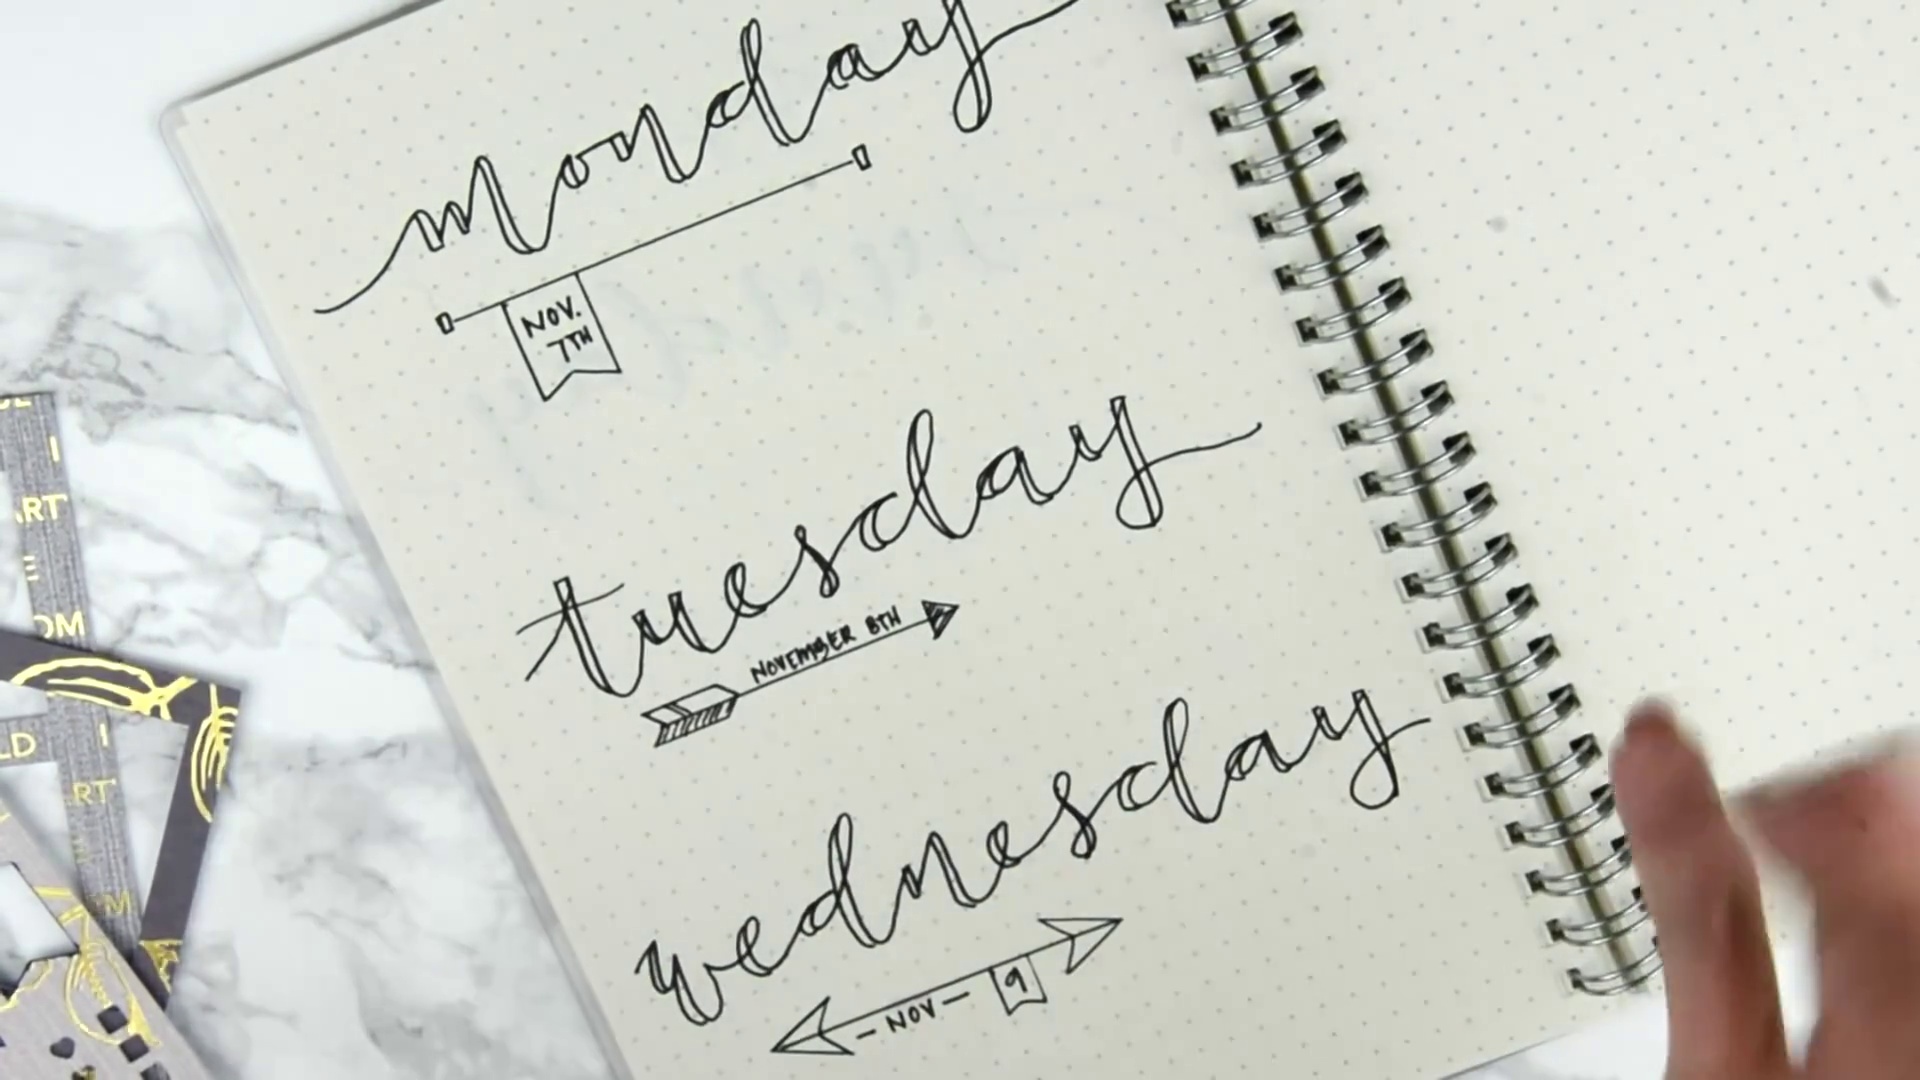 monday
NOV.
7TH
tuesday
NOVEMBER 8TH
wednesday
- NOV - 9
I
ART
E
OM
LD I
ART
OM